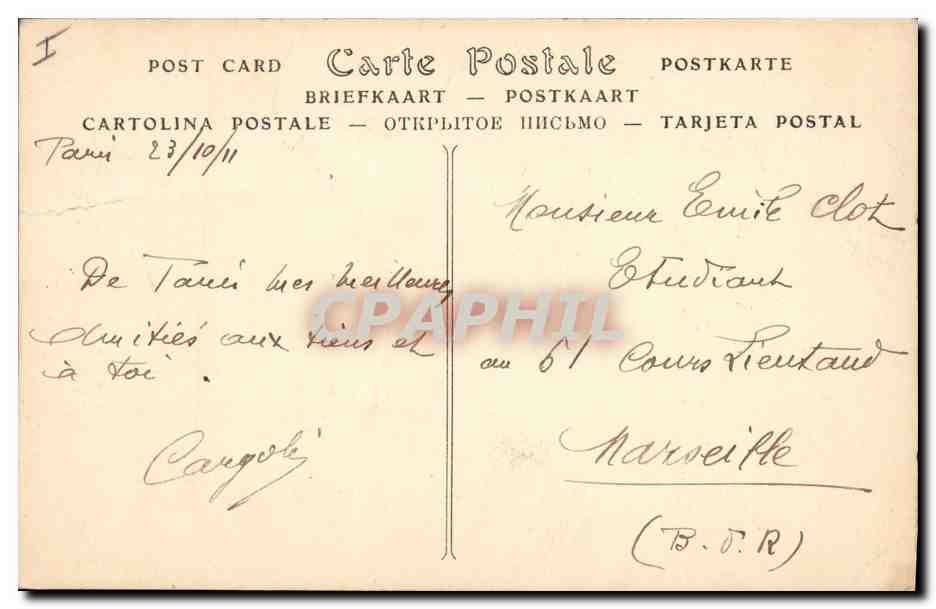 I
POST CARD Carte Postale POSTKARTE
BRIEFKAART — POSTKAART
CARTOLINA POSTALE — ОТКРЫТОЕ ПИСЬМО — TARJETA POSTAL
Paris 23/10/11
De Paris mes meilleures
Amitiés aux tiens et
à toi .
Monsieur Emile Clot
Etudiant
au 61 Cours Lieutaud
Marseille
(B. d. R)
CPAPHIL